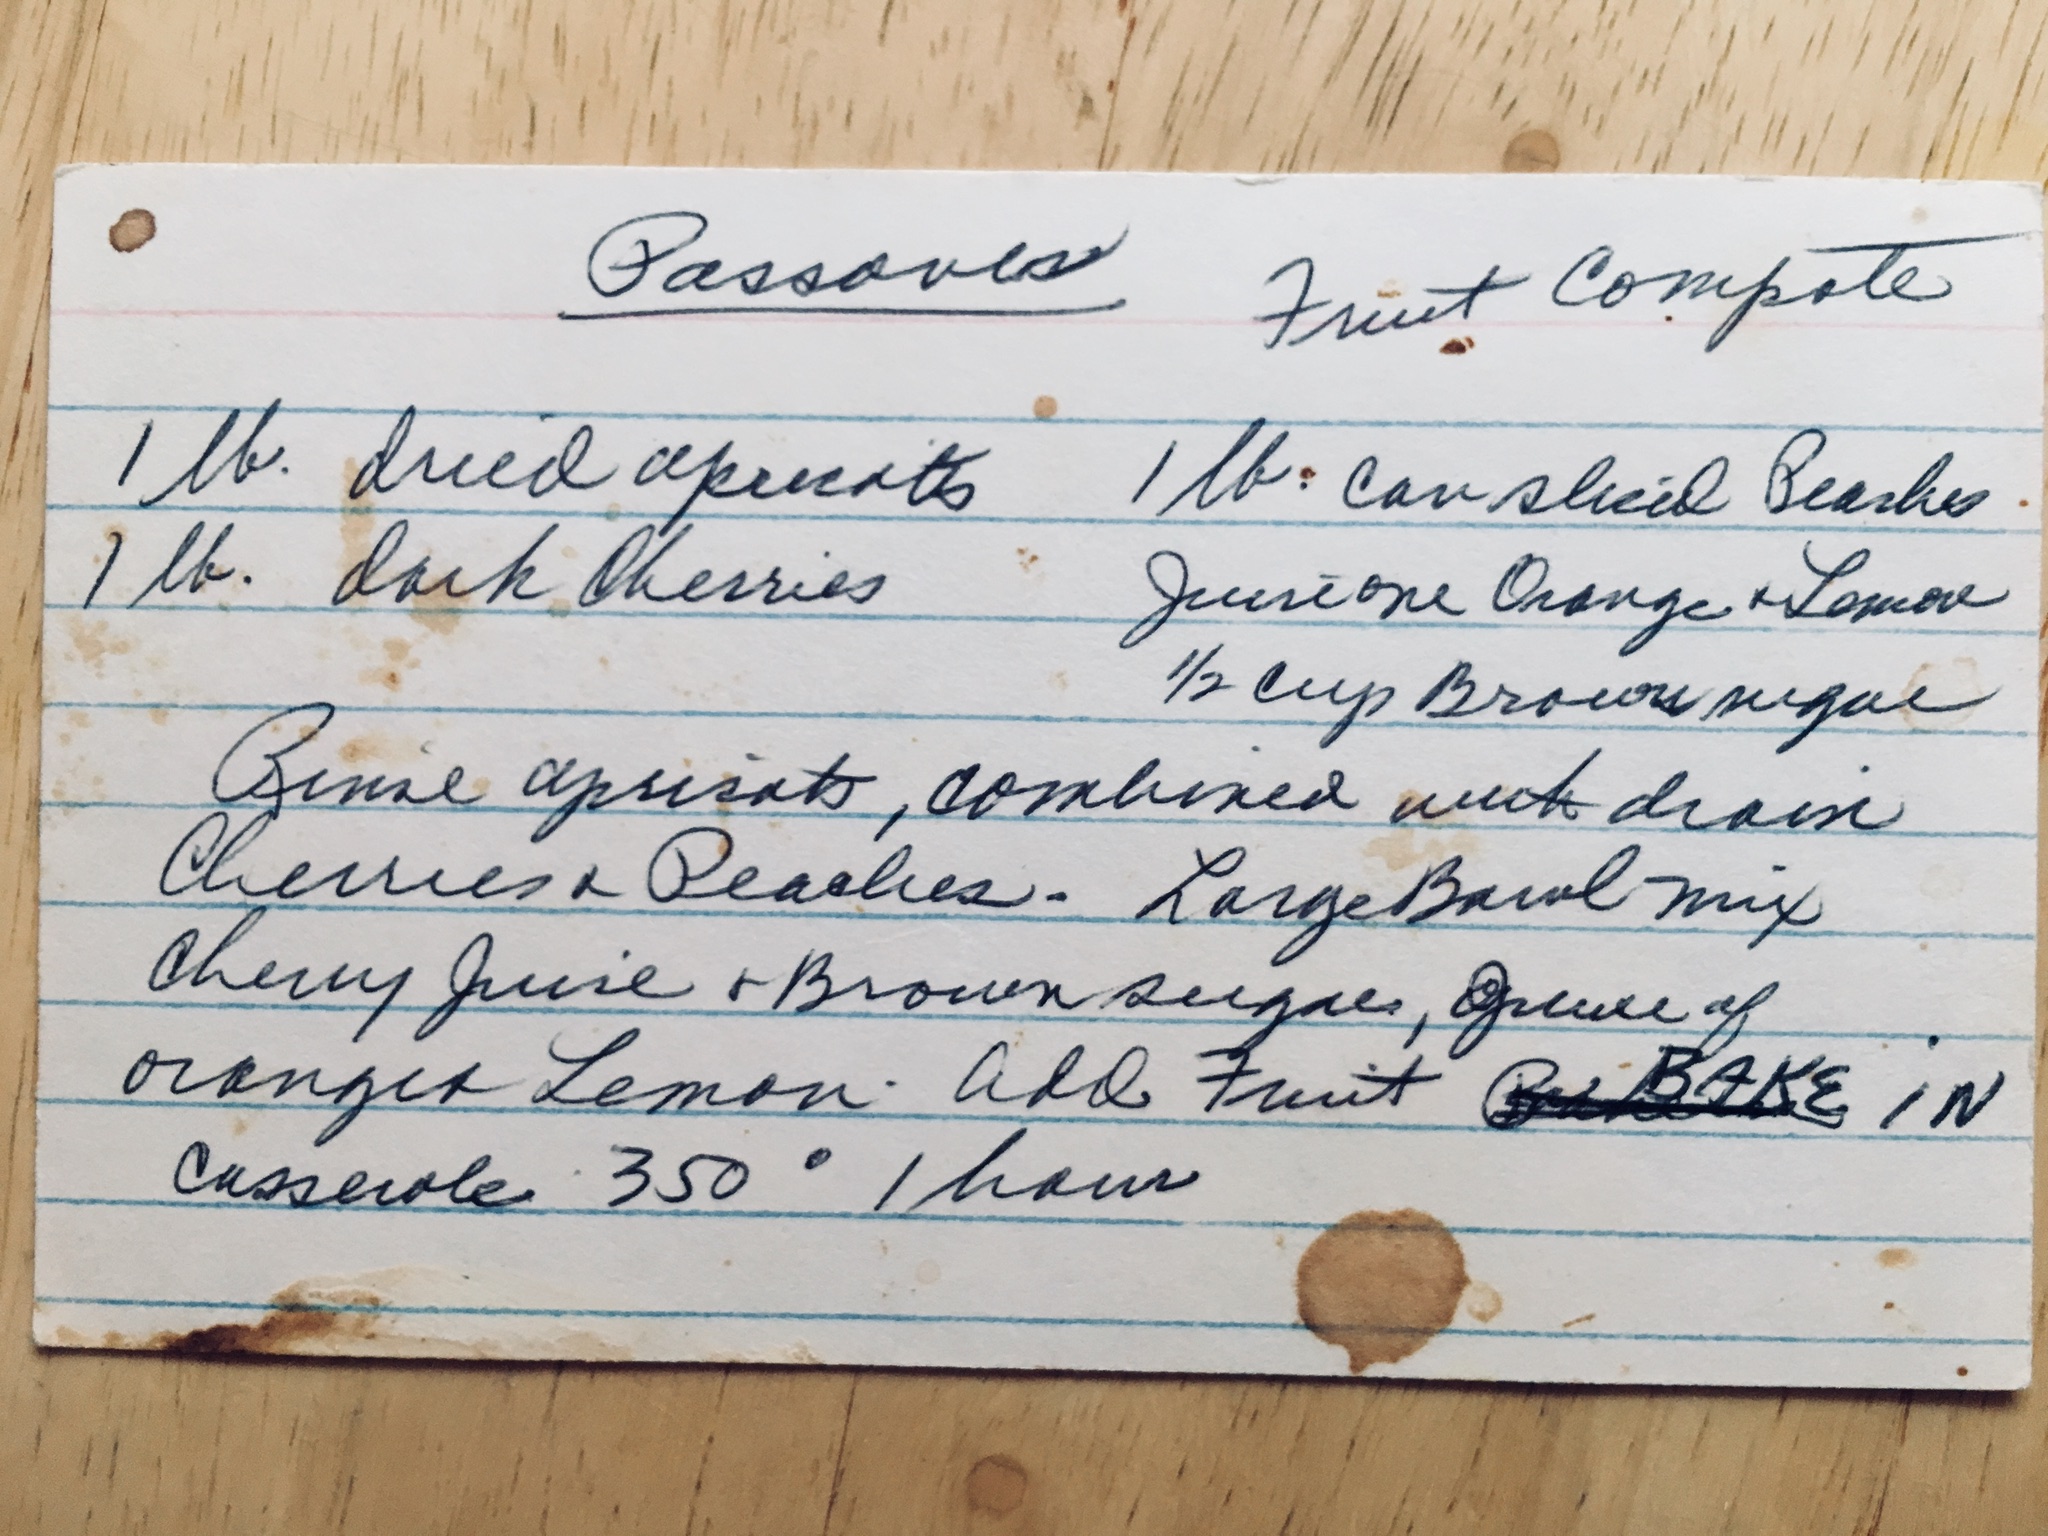 Passover Fruit Compote
1 lb. dried apricots 1 lb. can sliced Peaches
1 lb. dark Cherries Juice one Orange + Lemon
1/2 cup Brown sugar
Rinse apricots, combined with drain
Cherries + Peaches. Large Bowl mix
Cherry Juice + Brown sugar, Juice of
orange + Lemon. Add Fruit BAKE iN
casserole 350° 1 hour